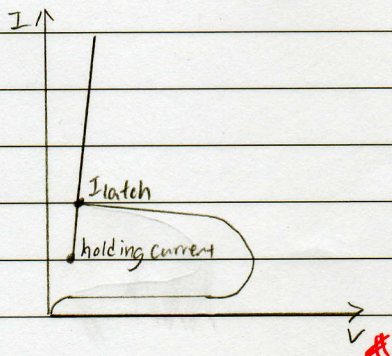 I
I latch
holding current
V